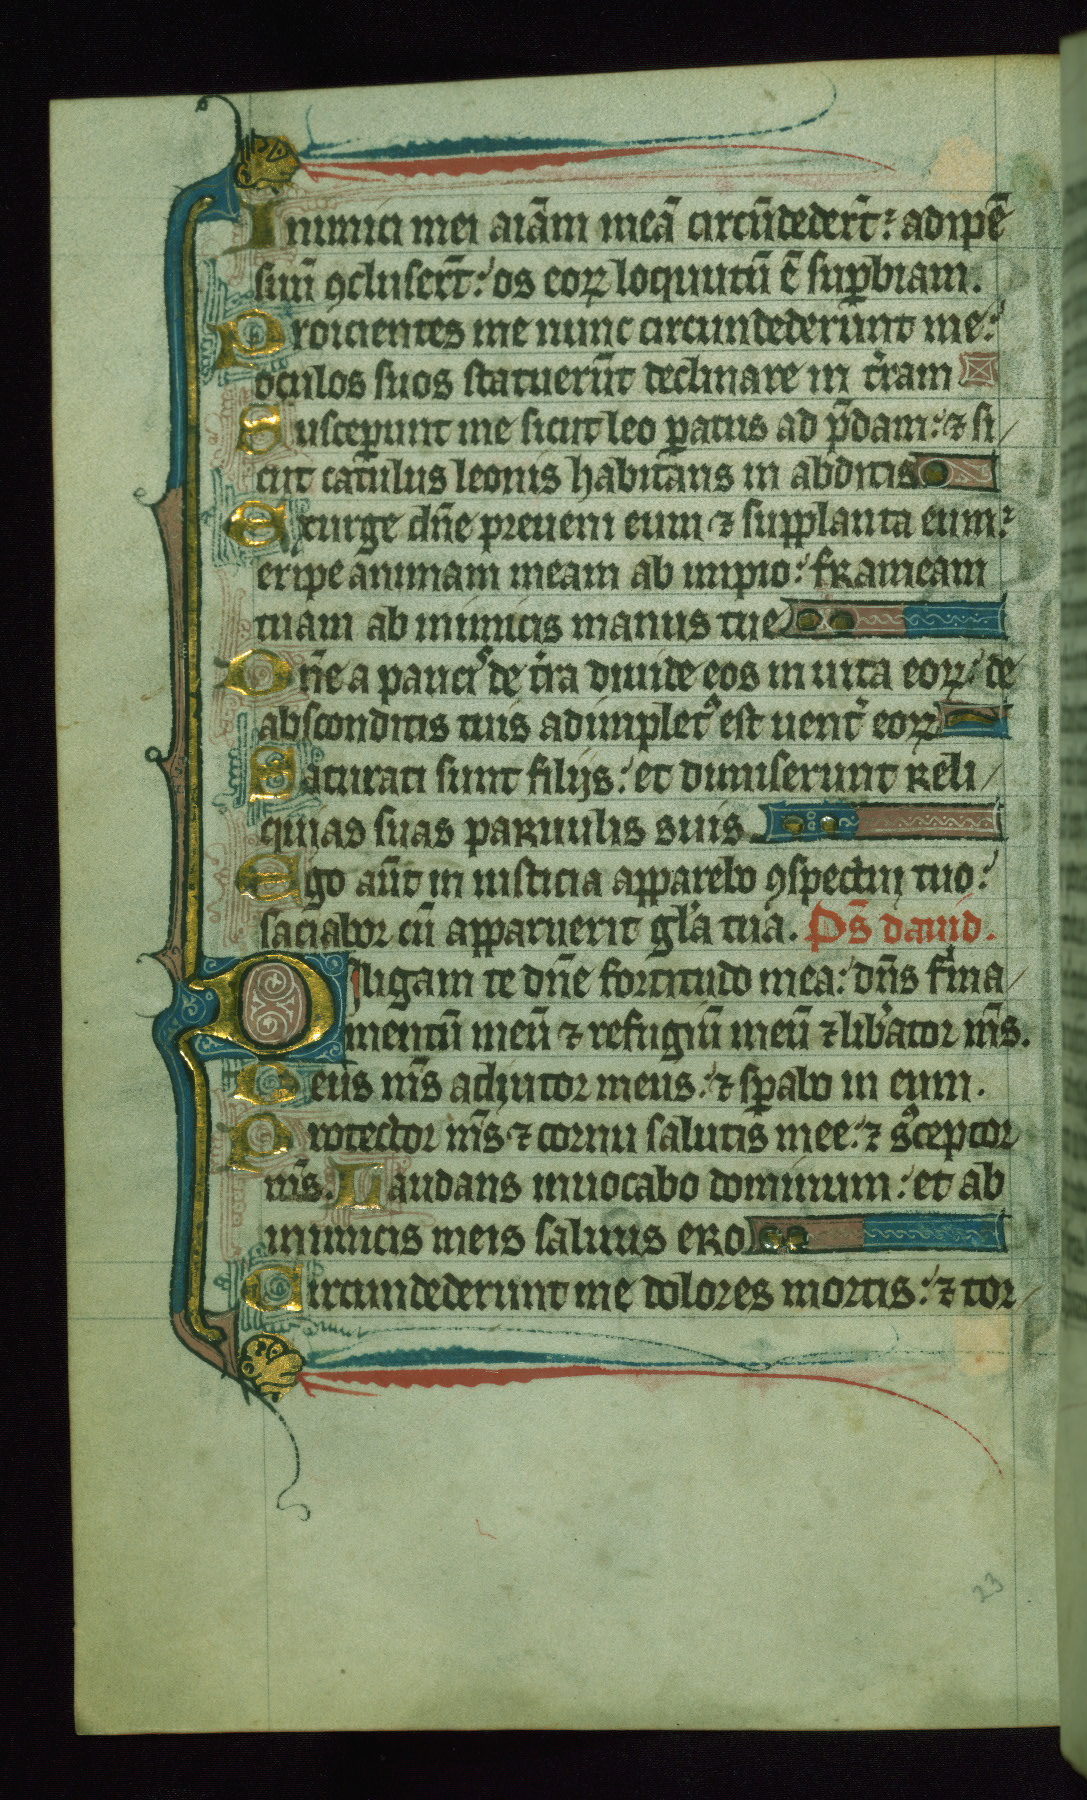 Inimici mei aīam meā circūdeder̄t: adipē
suū ꝯcluser̄t: os eoꝝ loquutū ē supbiam.
Proicientes me nunc circundederunt me:
oculos suos statuerūt declinare in t̄ram
Susceꝑunt me sicut leo ꝑatus ad p̄dam: ⁊ si/
cut catulus leonis habitans in abditis
Exurge dn̄e preueni eum ⁊ supplanta eum:
eripe animam meam ab impio: frameam
tuam ab inimicis manus tue
Dn̄e a pauciˢ de t̄ra diuide eos in uita eoꝝ: de
absconditis tuis adimplet᷒ est uent̄ eoꝝ
Saturati sunt filijs: et dimiserunt reli/
quias suas paruulis suis
Ego aūt in iusticia apparebo ꝯspectui tuo:
saciabor cū apparuerit gl̄a tua. Ps̄ dauid.
Diligam te dn̄e fortitudo mea: dn̄s firma/
mentū meū ⁊ refugiū meū ⁊ lib̄ator m̄s.
Deus m̄s adiutor meus: ⁊ sꝑabo in eum.
Protector m̄s ⁊ cornu salutis mee: ⁊ s᷒ceptor
m̄s. Laudans inuocabo dominum: et ab
inimicis meis saluus ero
Circundederunt me dolores mortis: ⁊ tor/
23